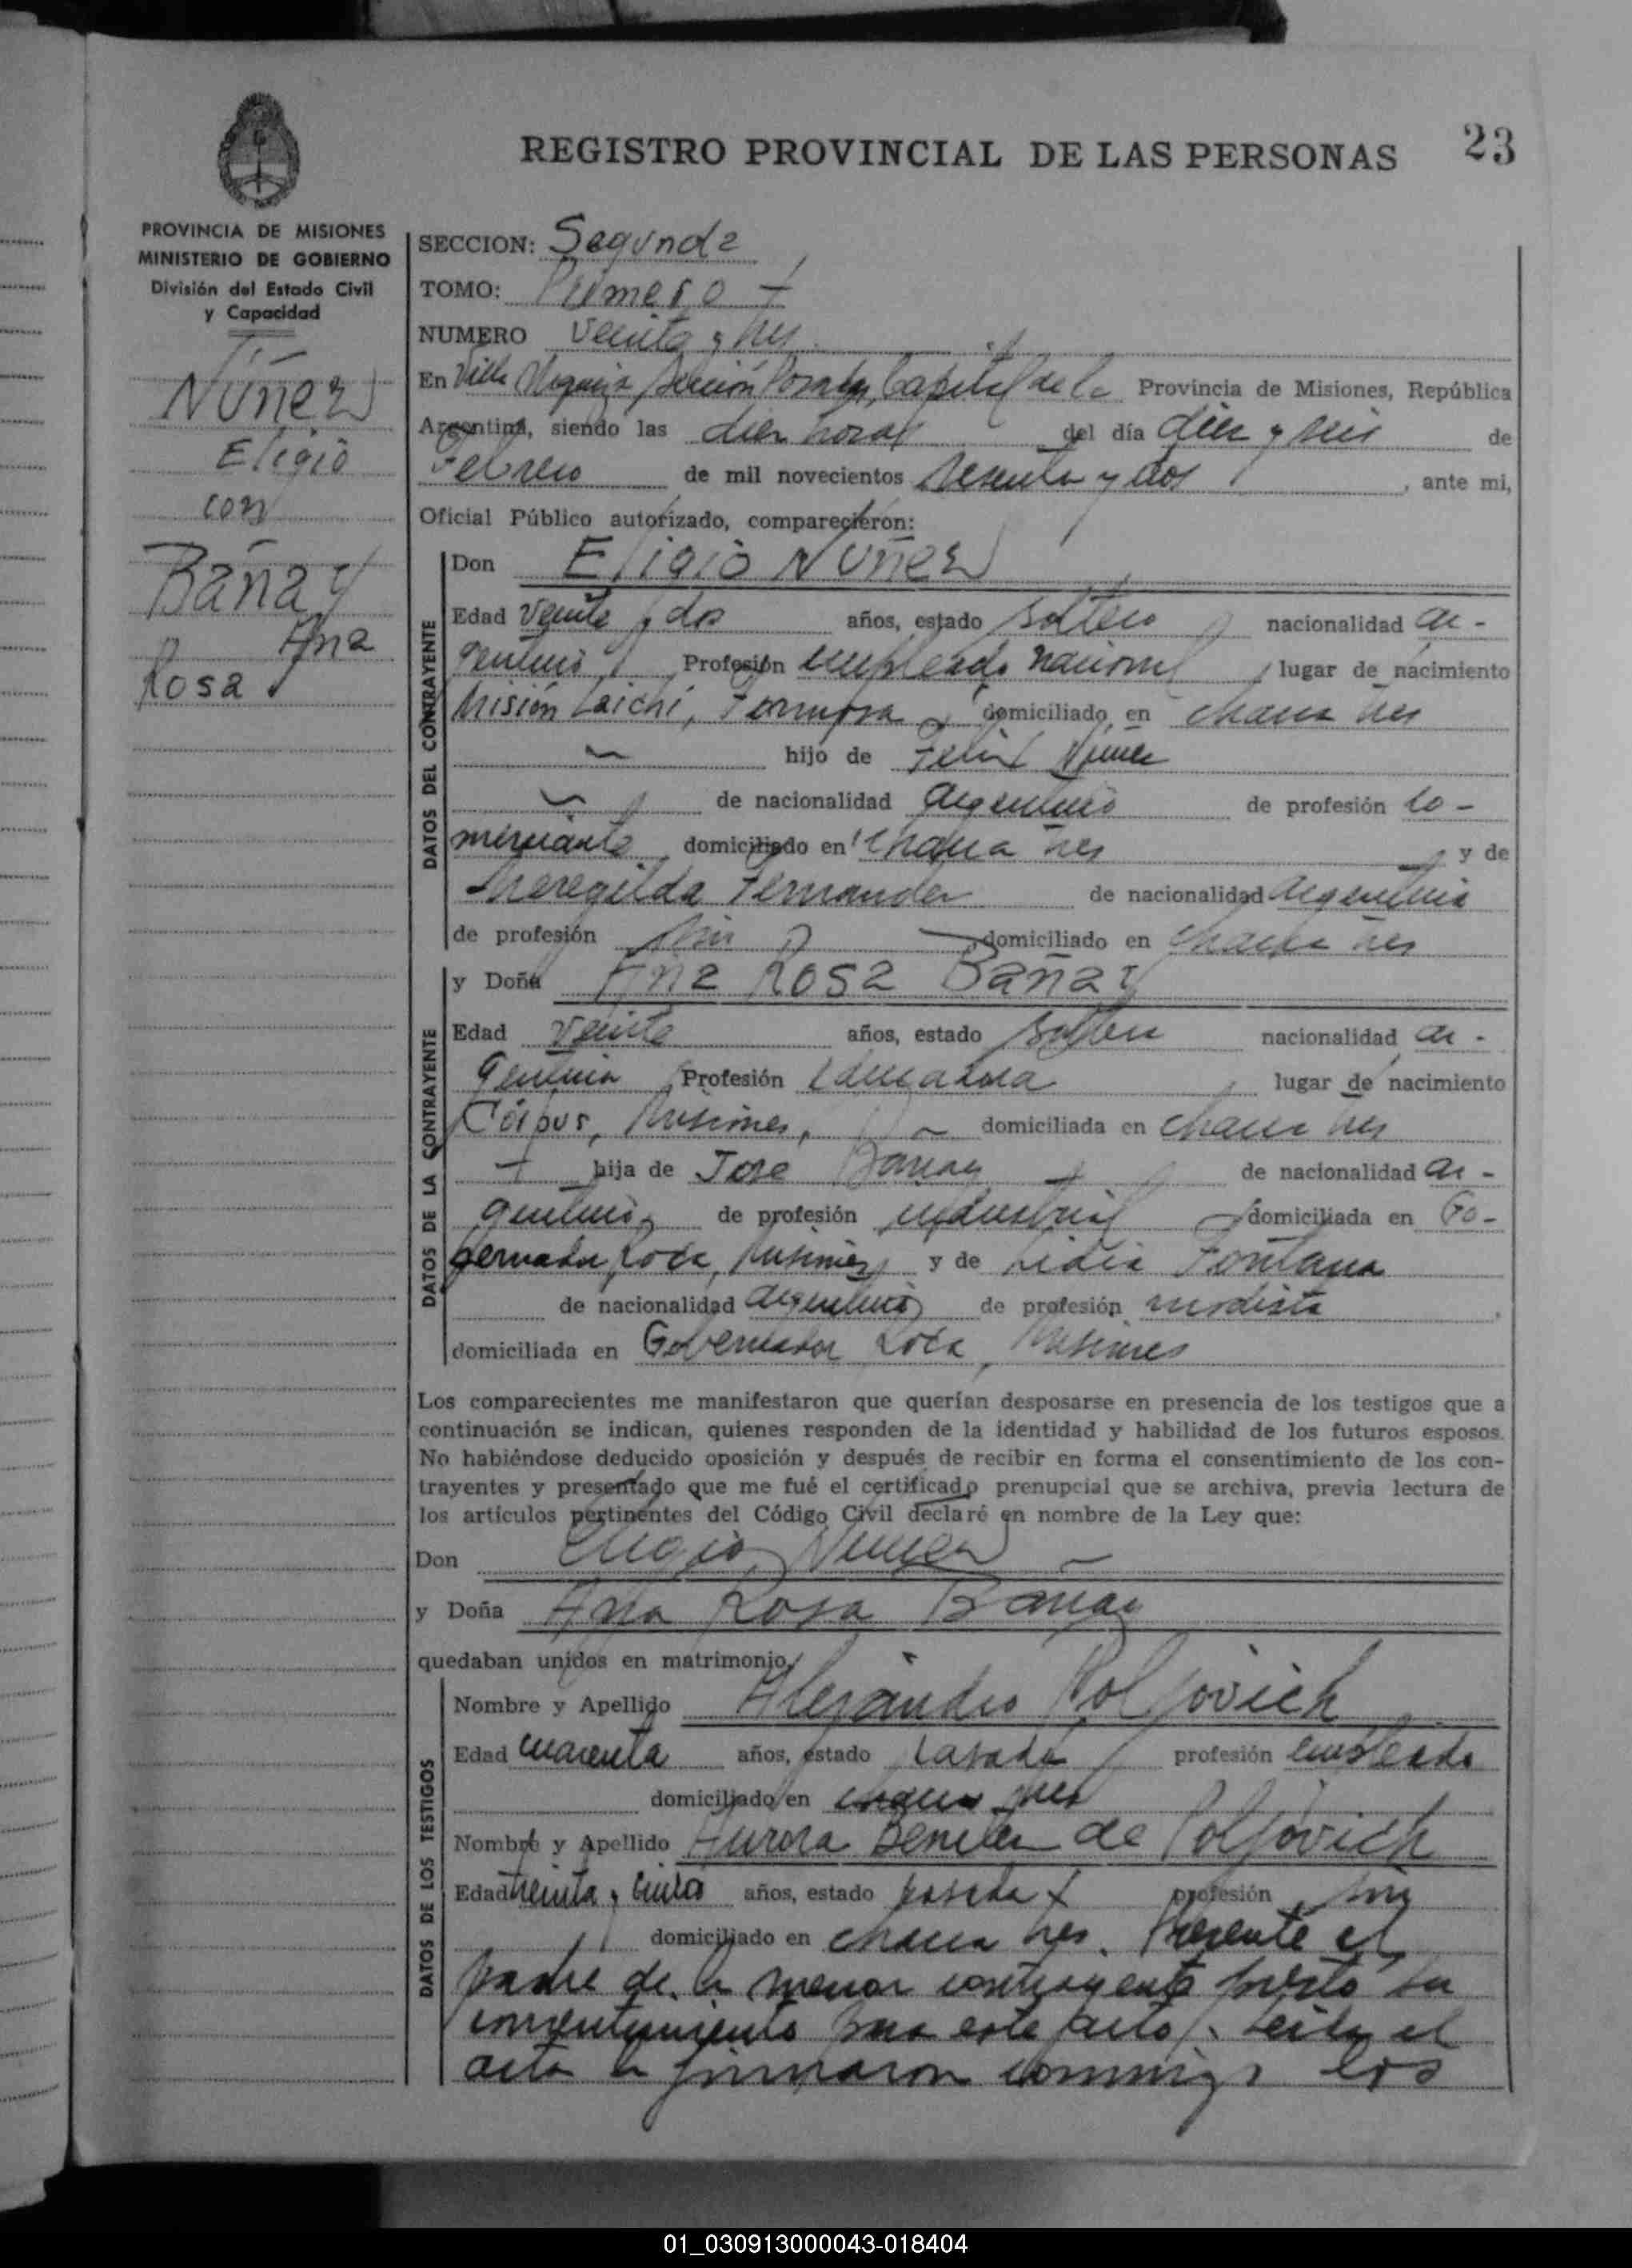 REGISTRO PROVINCIAL DE LAS PERSONAS 23
PROVINCIA DE MISIONES
MINISTERIO DE GOBIERNO
División del Estado Civil
y Capacidad
Núñez
Eligio
con
Bañay
Ana
Rosa
SECCION: Segunda
TOMO: Primero
NUMERO Veinte y tres
En Villa Urquiza, Sección Posadas, Capital de la Provincia de Misiones, República
Argentina, siendo las diez horas del día diez y seis de
Febrero de mil novecientos sesenta y dos, ante mi,
Oficial Público autorizado, comparecieron:
DATOS DEL CONTRAYENTE
Don Eligio Núñez
Edad veinte y dos años, estado soltero nacionalidad ar-
gentino Profesión empleado nacional, lugar de nacimiento
Misión Laichí, Formosa domiciliado en chacra tres
hijo de Felix Núñez
de nacionalidad argentino de profesión co-
merciante domiciliado en chacra tres y de
Meregilda Fernandez de nacionalidad argentina
de profesión sin domiciliado en chacra tres
DATOS DE LA CONTRAYENTE
y Doña Ana Rosa Bañay
Edad veinte años, estado soltera nacionalidad ar-
gentina Profesión educadora, lugar de nacimiento
Corpus, Misiones, domiciliada en chacra tres
hija de José Bañay de nacionalidad ar-
gentino, de profesión industrial domiciliada en Go-
bernador Roca, Misiones y de Lidia Fontana
de nacionalidad argentina de profesión modista
domiciliada en Gobernador Roca, Misiones
Los comparecientes me manifestaron que querían desposarse en presencia de los testigos que a
continuación se indican, quienes responden de la identidad y habilidad de los futuros esposos.
No habiéndose deducido oposición y después de recibir en forma el consentimiento de los con-
trayentes y presentado que me fué el certificado prenupcial que se archiva, previa lectura de
los artículos pertinentes del Código Civil declaré en nombre de la Ley que:
Don Eligio Núñez
y Doña Ana Rosa Bañay
quedaban unidos en matrimonio,
DATOS DE LOS TESTIGOS
Nombre y Apellido Alejandro Poljovich
Edad cuarenta años, estado casado profesión empleado
domiciliado en chacra tres
Nombre y Apellido Aurora Benitez de Poljovich
Edad treinta y cinco años, estado casada profesión sin
domiciliado en chacra tres. Presente el
padre de la menor contrayente prestó su
consentimiento para este acto. Leída el
acta la firmaron conmigo los
01_030913000043-018404